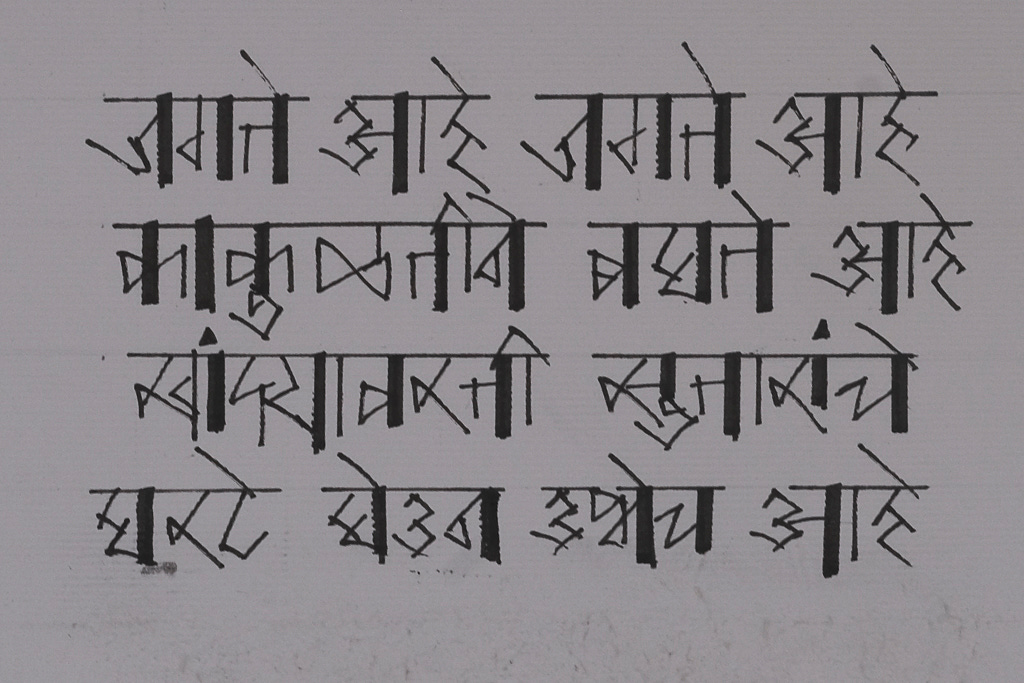 जगते आहे जगते आहे
काकुळतीने बघते आहे
खांद्यावरती सुतारांचे
घरटे घेउन इथेच आहे